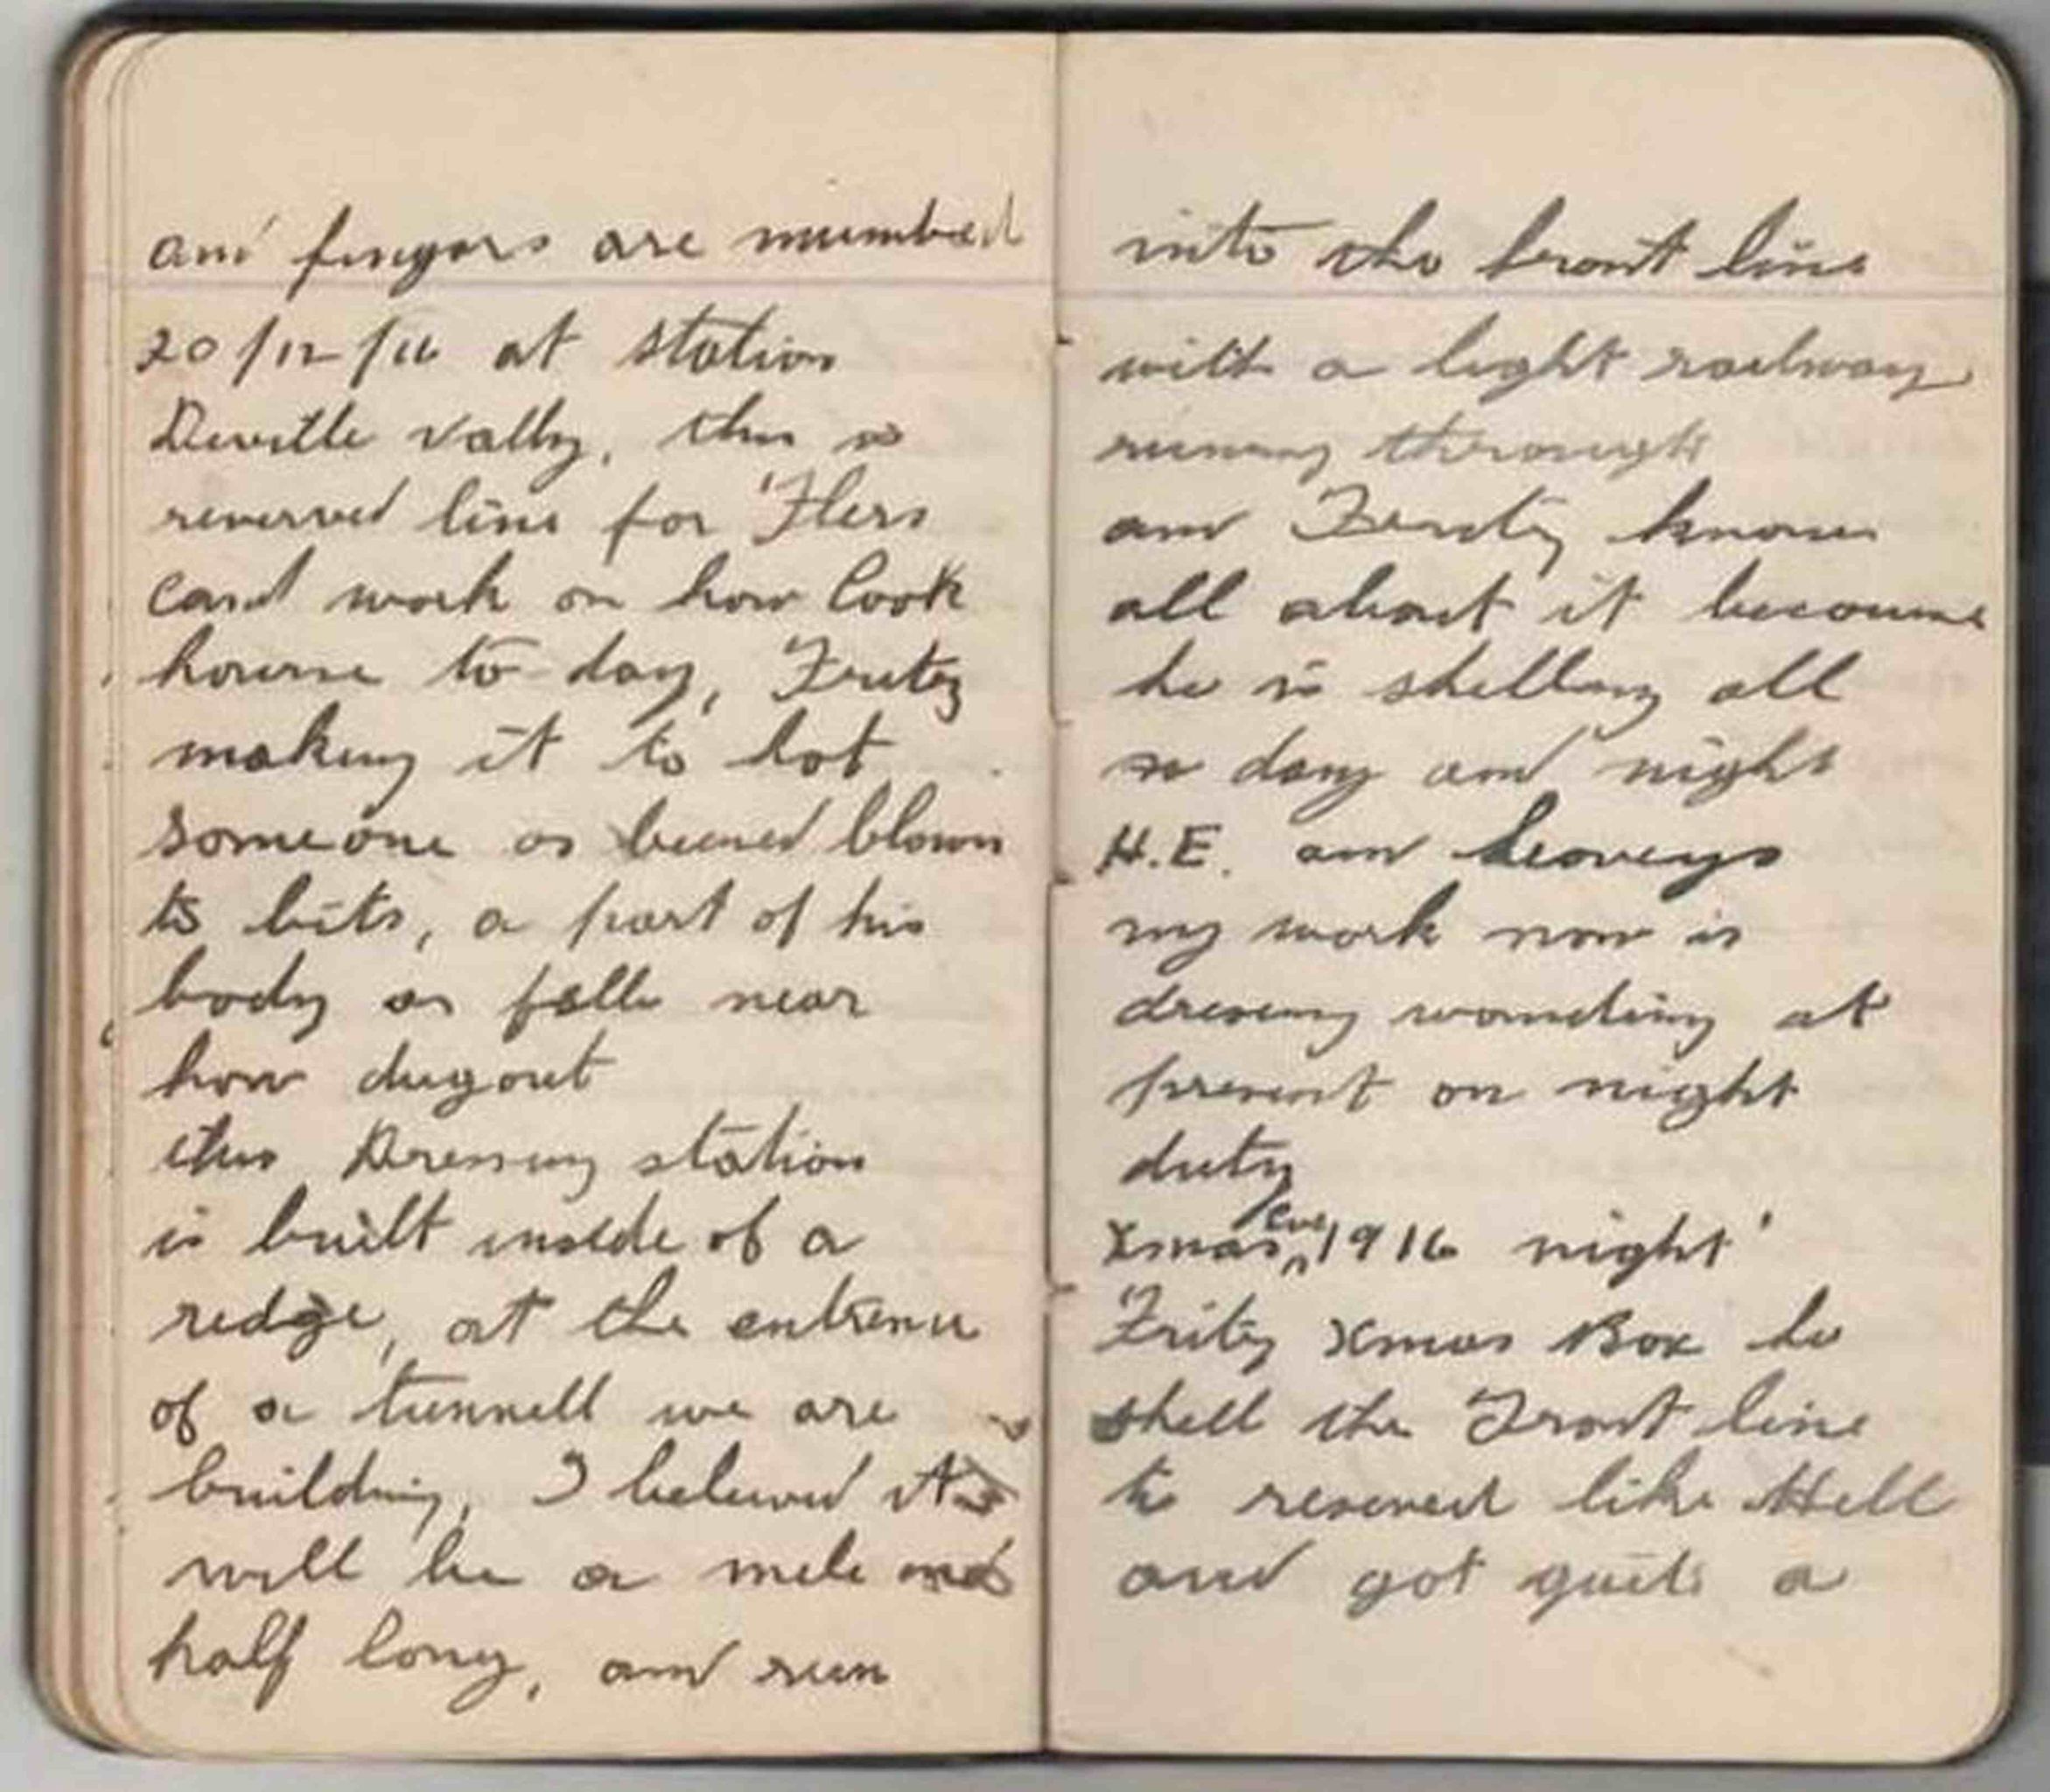 and fingers are numbed
20/12/16 at station
Deville Vally, this is
reserved line for Flers
cant work on how Cook
house to day, Fritz
making it to hot
someone as beened blown
to bits, a part of his
body as falle near
how dugout
this Dressing station
is built inside of a
redge, at the entrence
of a tunnell we are
building, I beleived it
will be a mile and
half long, and run
into the front line
with a light railway
running through
and Fritz knows
all about it because
he is shelling all
day and night
H.E. and heaveys
my work now is
dressing wounding at
present on night
duty
Xmas eve 1916 night
Fritz Xmas Box he
shell the Front line
to reserved like Hell
and got quite a